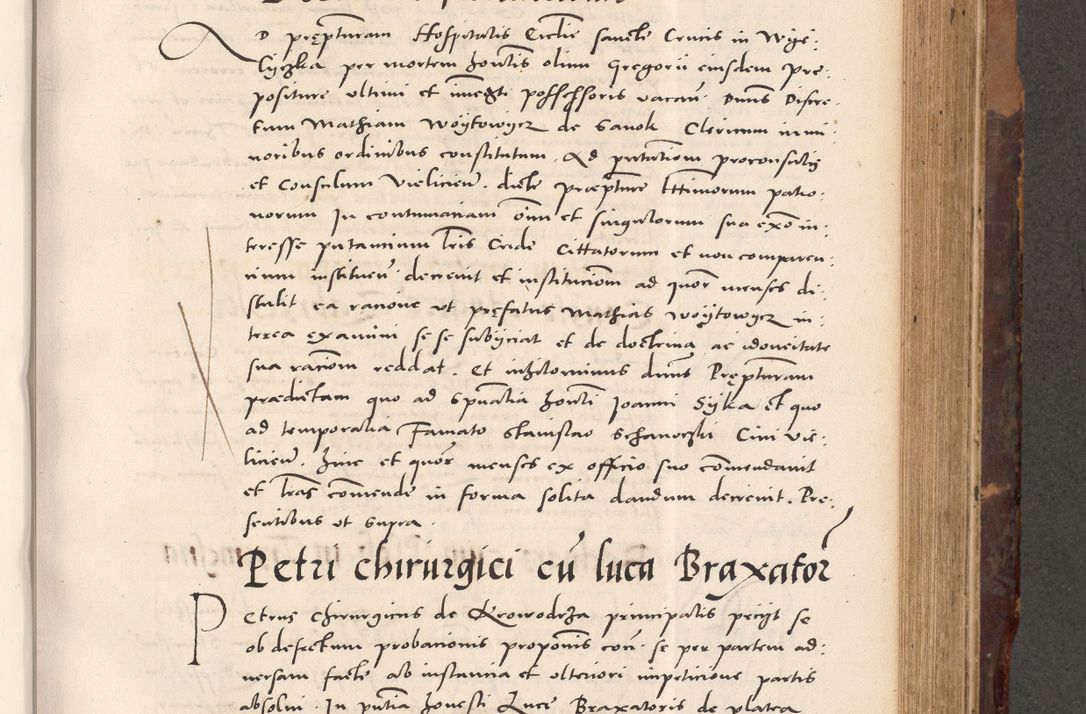 D pręptturam Hospitalis Ecclie sancte Crucis in Wye:
lyczka per mortem honestis olim Gregorii eiusdem pre:
positure ultimi et immedti possessoris vacan. Dnus Discre:
tum Mathiam Woytowycz de Sanok Clericum in mi:
noribus ordinibus constitutum. Ad pntationem proconsulis
et Consulum Vielicien. dicte Præpture lttimorum patro:
norum In contumaciam oim et singulorum sua exo in:
teresse putancium Lris Cride Cittatorum et non comparen:
cium instituen. decrevit et instituciom ad quor menses di:
stulit ea racione ut prefatus Mathias Woytowycz in:
terea examini se se subyciat et de doctrina ac idoneitate
sua raciom reddat. Et nihilominus dnus Pręptturam
prædictam quo ad Spualia honesti Joanni Syka et quo
ad temporalia Famato Stanislao Schanoczki Civi Vie:
licien. hinc et quor menses ex officio suo comendavit
et lras comende in forma solita dandum decrevit. Pre:
sentibus ut supra.
Petri chirurgici cū luca Braxator
Petrus Chirurgicus de Krowodrza principalis peciit se
ob defectum probacionis proponis con. se per partem ad:
versam facte ab instancia et ulteriori impeticione partis
absolvi. In pntia honesti Luce Braxatoris de platea